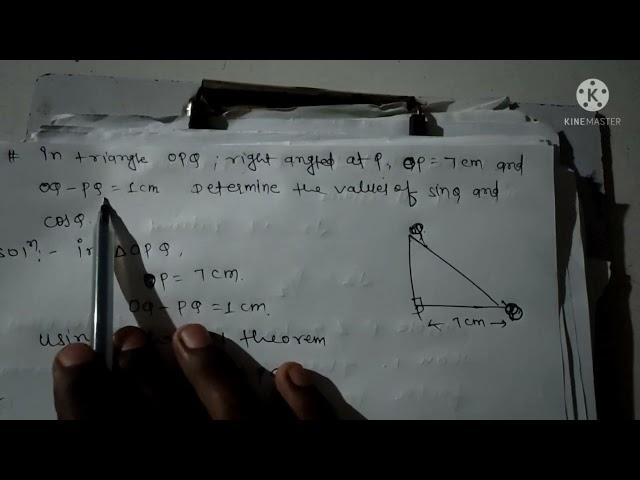 KINEMASTER
# In triangle OPQ, right angled at P, OP = 7cm and
OQ - PQ = 1cm Determine the values of sinQ and
cosQ.
Sol^n:- in ΔOPQ,
OP = 7cm.
OQ - PQ = 1cm.
theorem
Q
P
O
← 7cm →